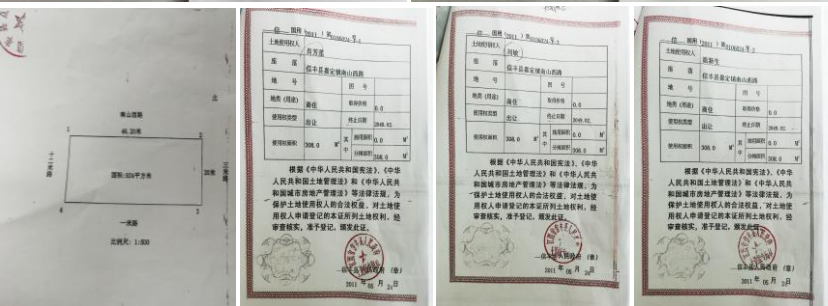 南山西路
北
46.20米
1
2
十二米路
面积:924平方米
20米
三米路
4
3
一米路
比例尺: 1:500
信 国用(2011)第
土地使用权人
座 落 信丰县嘉定镇南山西路
地 号
图 号
地类(用途) 商住
取得价格 0.0
使用权类型 出让
终止日期
使用权面积 308.0 M²
其中
独用面积 0.0 M²
分摊面积 308.0 M²
根据《中华人民共和国宪法》、《中华
人民共和国土地管理法》和《中华人民共
和国城市房地产管理法》等法律法规,为
保护土地使用权人的合法权益,对土地使
用权人申请登记的本证所列土地权利,经
审查核实,准予登记,颁发此证。
信丰县人民政府(章)
2011 年 05 月
信 国用(2011)第
土地使用权人 刘敏
座 落 信丰县嘉定镇南山西路
地 号
图 号
地类(用途) 商住
取得价格 0.0
使用权类型 出让
终止日期
使用权面积 308.0 M²
其中
独用面积 0.0 M²
分摊面积 308.0 M²
根据《中华人民共和国宪法》、《中华
人民共和国土地管理法》和《中华人民共
和国城市房地产管理法》等法律法规,为
保护土地使用权人的合法权益,对土地使
用权人申请登记的本证所列土地权利,经
审查核实,准予登记,颁发此证。
信丰县人民政府(章)
2011 年 05 月
信 国用(2011)第
土地使用权人
座 落 信丰县嘉定镇南山西路
地 号
图 号
地类(用途) 商住
取得价格 0.0
使用权类型 出让
终止日期
使用权面积 308.0 M²
其中
独用面积 0.0 M²
分摊面积 308.0 M²
根据《中华人民共和国宪法》、《中华
人民共和国土地管理法》和《中华人民共
和国城市房地产管理法》等法律法规,为
保护土地使用权人的合法权益,对土地使
用权人申请登记的本证所列土地权利,经
审查核实,准予登记,颁发此证。
信丰县人民政府(章)
2011 年 05 月